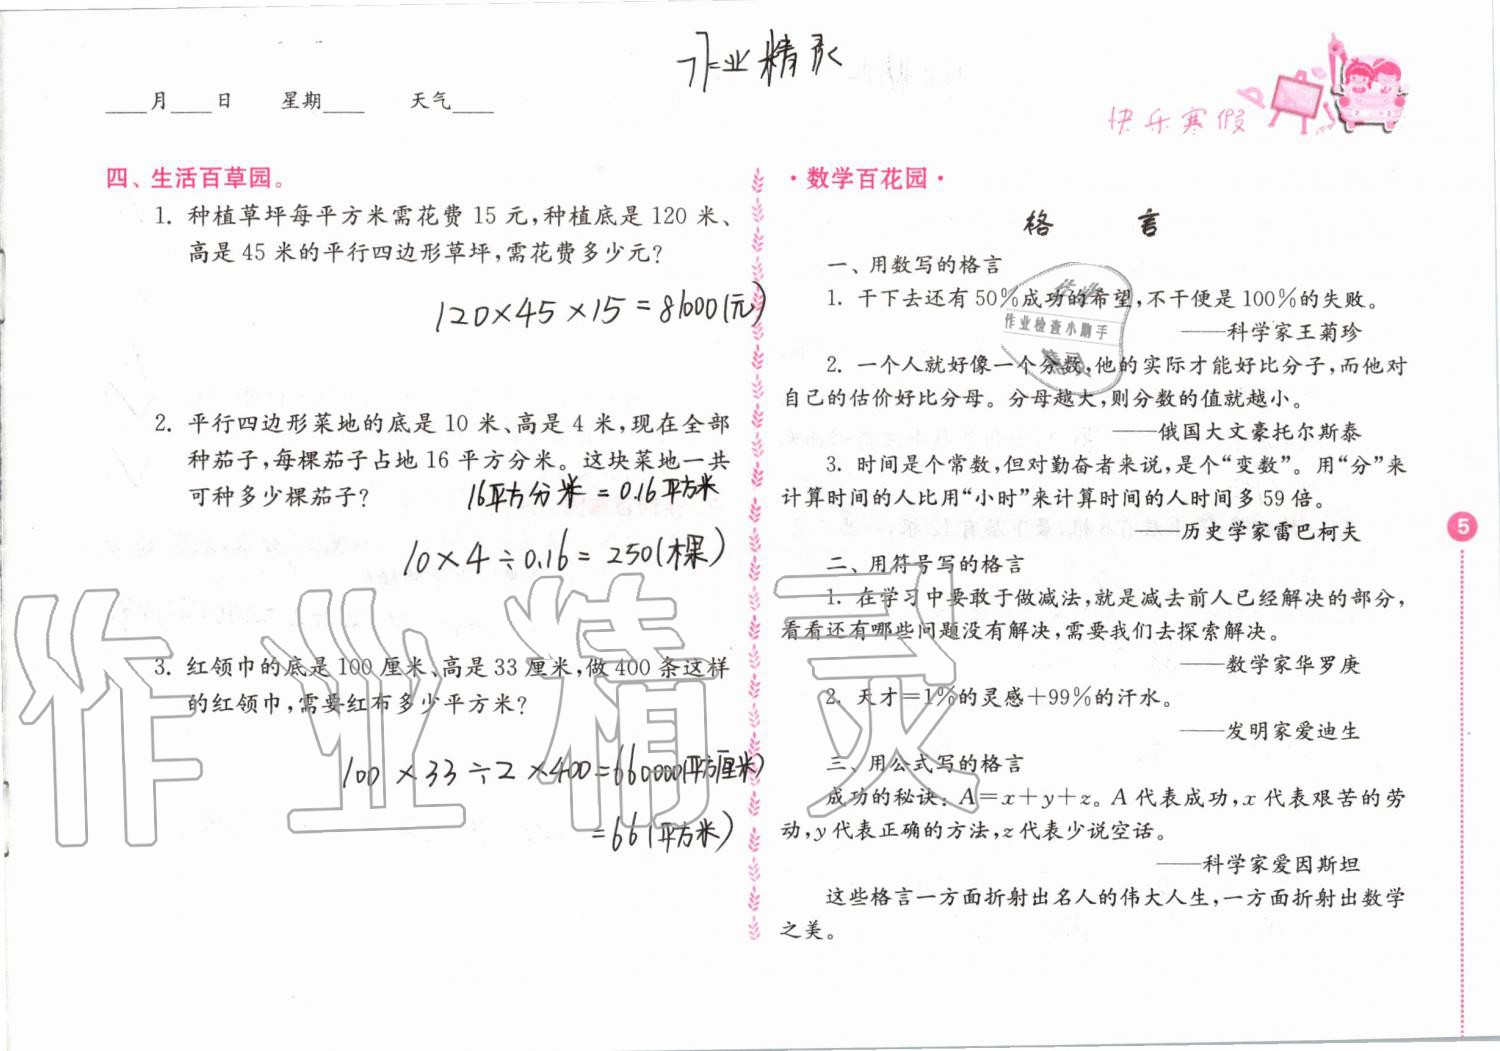 作业精灵
____月____日 星期____ 天气____
快乐寒假
四、生活百草园。
1. 种植草坪每平方米需花费 15 元,种植底是 120 米、
高是 45 米的平行四边形草坪,需花费多少元?
120×45×15=81000(元)
2. 平行四边形菜地的底是 10 米、高是 4 米,现在全部
种茄子,每棵茄子占地 16 平方分米。这块菜地一共
可种多少棵茄子?
16平方分米=0.16平方米
10×4÷0.16=250(棵)
3. 红领巾的底是 100 厘米、高是 33 厘米,做 400 条这样
的红领巾,需要红布多少平方米?
100×33÷2×400=660000(平方厘米)
=66(平方米)
·数学百花园·
格 言
一、用数写的格言
1. 干下去还有 50%成功的希望,不干便是 100%的失败。
——科学家王菊珍
2. 一个人就好像一个分数,他的实际才能好比分子,而他对
自己的估价好比分母。分母越大,则分数的值就越小。
——俄国大文豪托尔斯泰
3. 时间是个常数,但对勤奋者来说,是个“变数”。用“分”来
计算时间的人比用“小时”来计算时间的人时间多 59 倍。
——历史学家雷巴柯夫
二、用符号写的格言
1. 在学习中要敢于做减法,就是减去前人已经解决的部分,
看看还有哪些问题没有解决,需要我们去探索解决。
——数学家华罗庚
2. 天才=1%的灵感+99%的汗水。
——发明家爱迪生
三、用公式写的格言
成功的秘诀:A=x+y+z。A 代表成功,x 代表艰苦的劳
动,y 代表正确的方法,z 代表少说空话。
——科学家爱因斯坦
这些格言一方面折射出名人的伟大人生,一方面折射出数学
之美。
5
作业
作业检查小助手
精灵
作业精灵